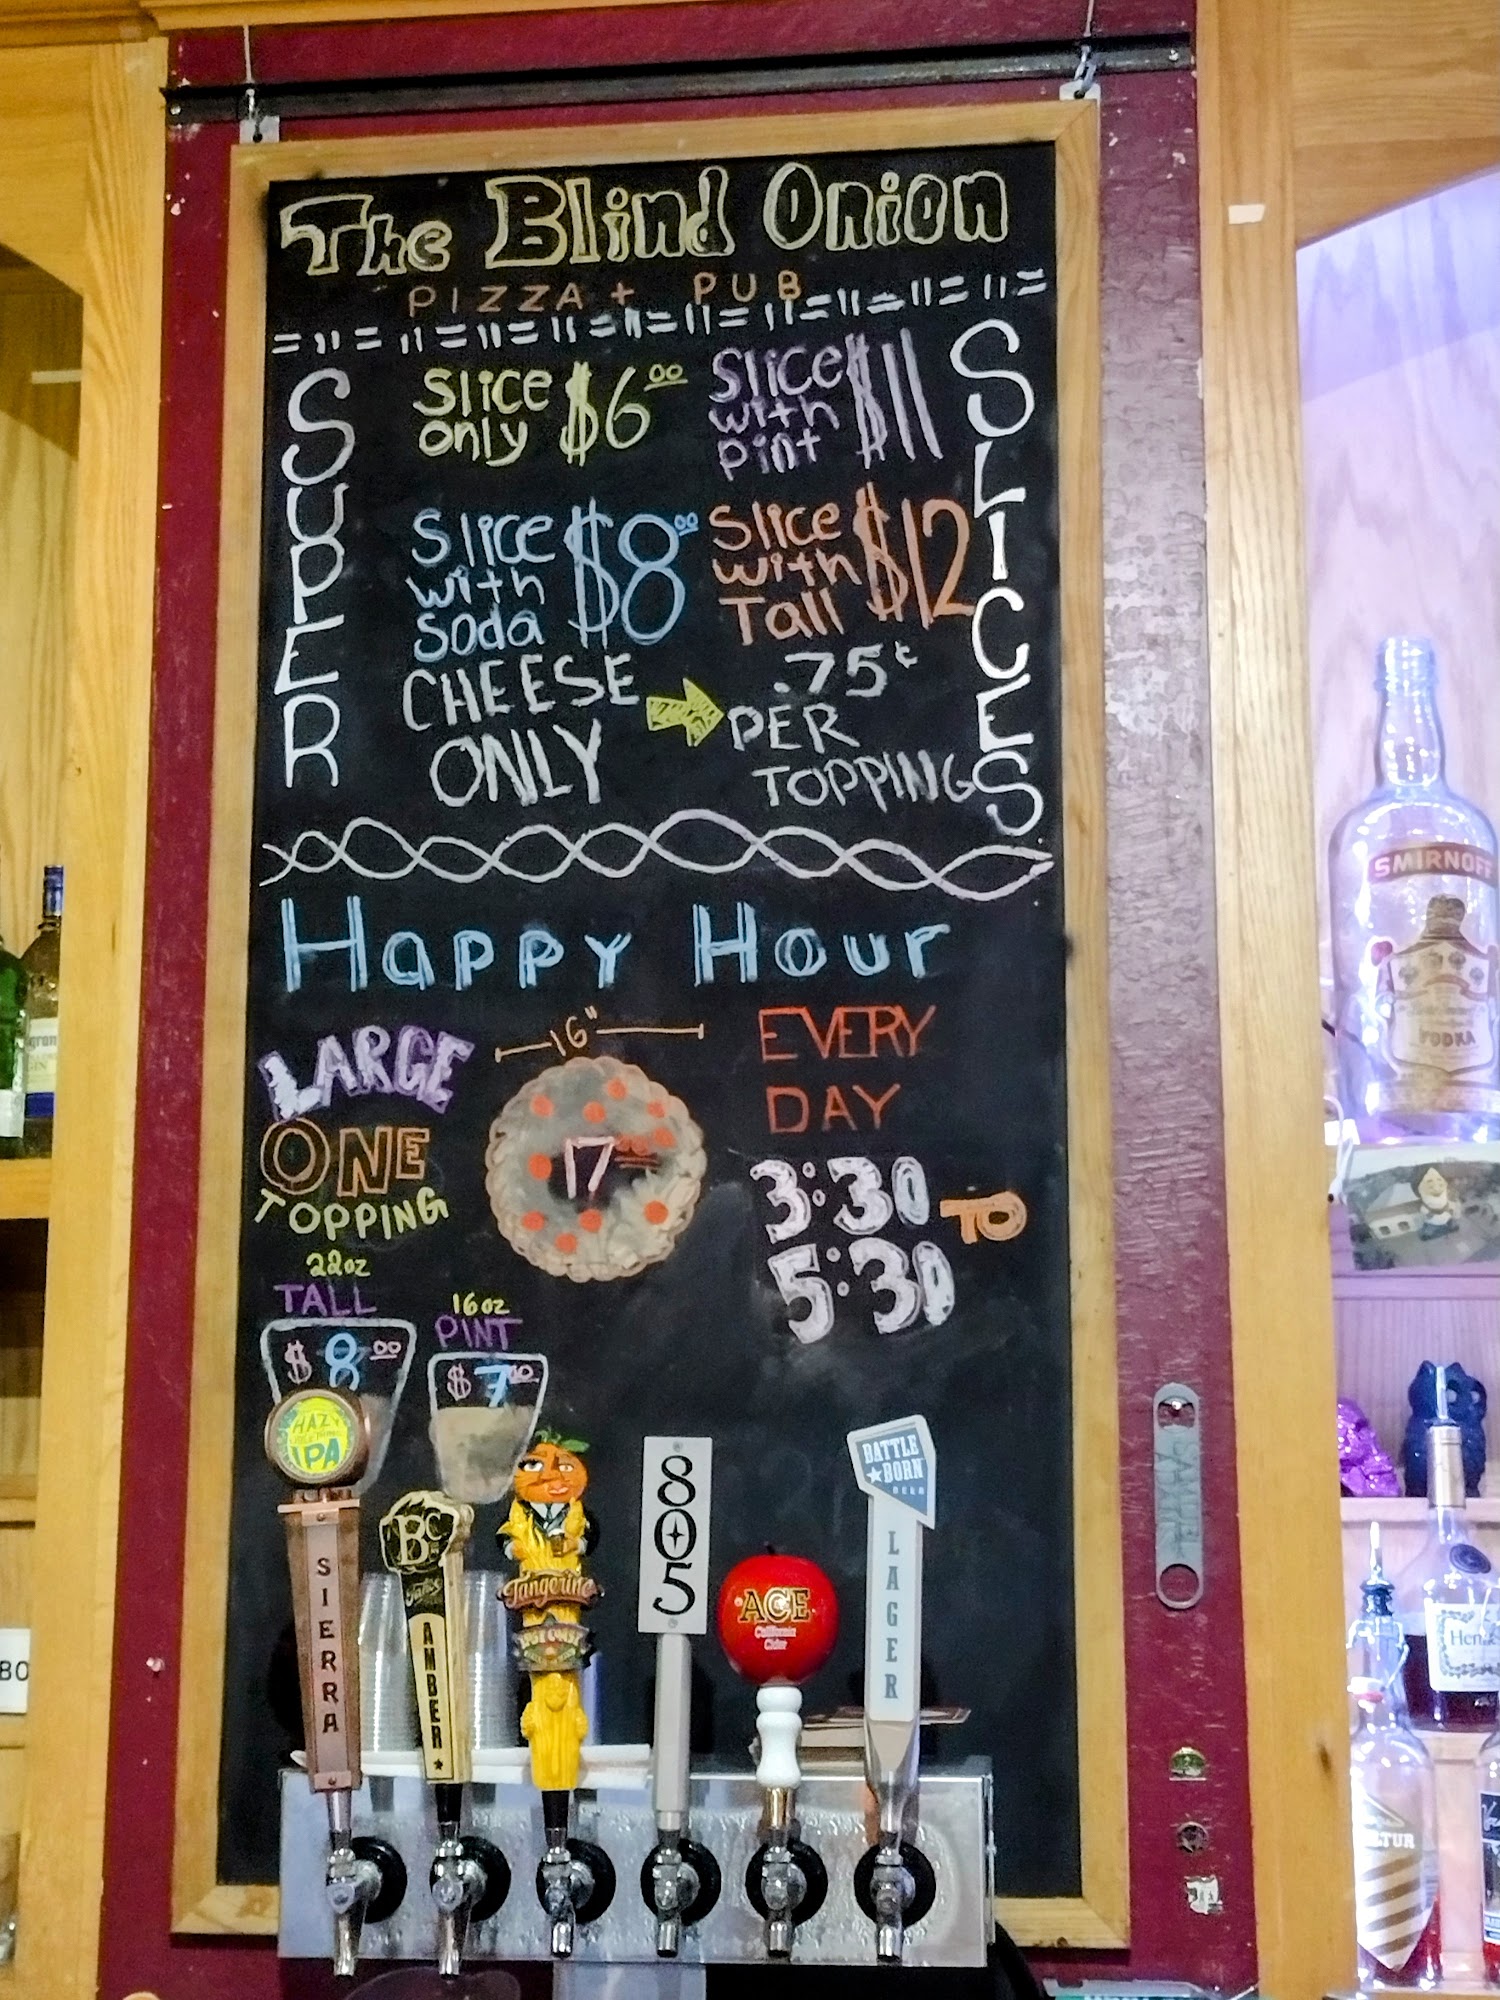 The Blind Onion
PIZZA + PUB
SUPER
SLICES
Slice only $6.00
Slice with pint $11
Slice with Soda $8.00
Slice with Tall $12
CHEESE ONLY
.75¢ PER TOPPING
Happy Hour
LARGE
ONE
TOPPING
16"
17.00
EVERY
DAY
3:30 TO
5:30
22oz
TALL
$8.00
16oz
PINT
$7.00
HAZY
IPA
SIERRA
AMBER
Tangerine
805
ACE
California
Cider
BATTLE
BORN
BEER
LAGER
SMIRNOFF
VODKA
GIN
BO
Henn
TUR